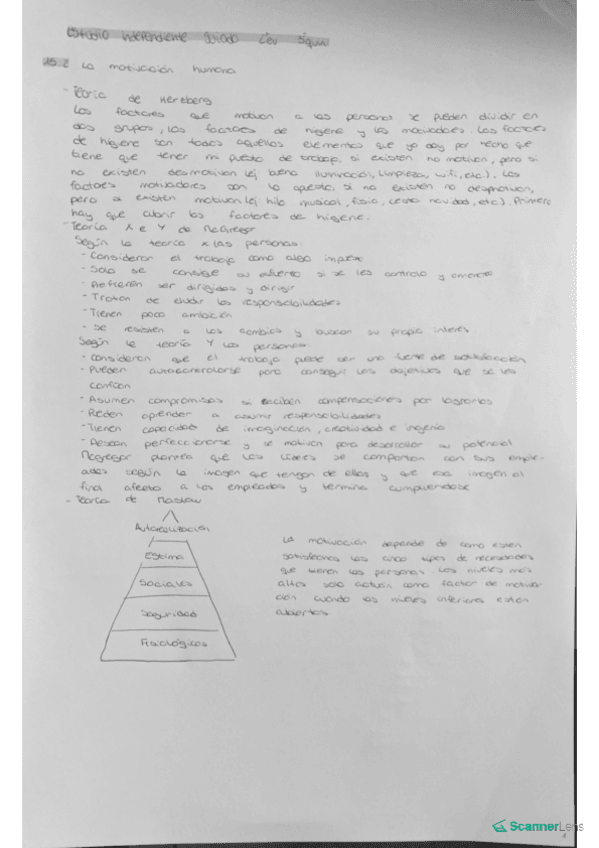 Estudio independiente guiado Lev Siquu
15.2 La motivación humana
- Teoría de Herzberg
Los factores que motivan a las personas se pueden dividir en
dos grupos, los factores de higiene y los motivadores. Los factores
de higiene son todos aquellos elementos que yo doy por hecho que
tiene que tener mi puesto de trabajo, si existen no motivan, pero si
no existen desmotivan (ej buena iluminación, limpieza, wifi, etc.). Los
factores motivadores son lo opuesto, si no existen no desmotivan,
pero si existen motivan (ej hilo musical, fisio, cesta navidad, etc). Primero
hay que cubrir los factores de higiene.
- Teoría X e Y de McGregor
Según la teoría X las personas:
- Consideran el trabajo como algo impuesto
- Solo se consigue su esfuerzo si se les controla y amenaza
- Prefieren ser dirigidos y dirigir
- Tratan de eludir las responsabilidades
- Tienen poca ambición
- Se resisten a los cambios y buscan su propio interés
Según la teoría Y las personas:
- Consideran que el trabajo puede ser una fuente de satisfacción
- Pueden autocontrolarse para conseguir los objetivos que se les
confían
- Asumen compromisos si reciben compensaciones por lograrlos
- Pueden aprender a asumir responsabilidades
- Tienen capacidad de imaginación, creatividad e ingenio
- Desean perfeccionarse y se motivan para desarrollar su potencial
McGregor plantea que los líderes se comportan con sus emple-
ados según la imagen que tengan de ellos y que esa imagen al
final afecta a los empleados y termina cumpliéndose
- Teoría de Maslow
Autorrealización
Estima
Sociales
Seguridad
Fisiológicos
La motivación depende de como estén
satisfechos los cinco tipos de necesidades
que tienen las personas. Los niveles más
altos solo actúan como factor de motiva-
ción cuando los niveles inferiores estén
cubiertos.
ScannerLens